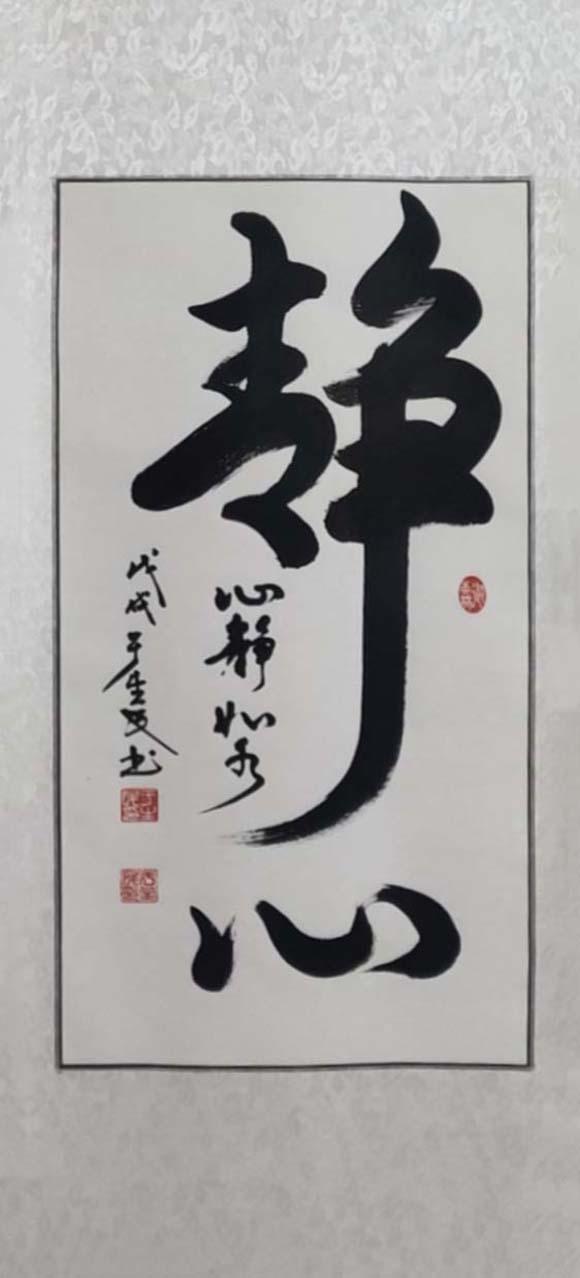 静心
心静如水
戊戌于生
书